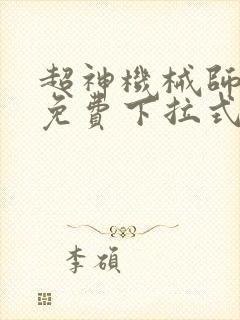 超神機械師
免費下拉式
李碩